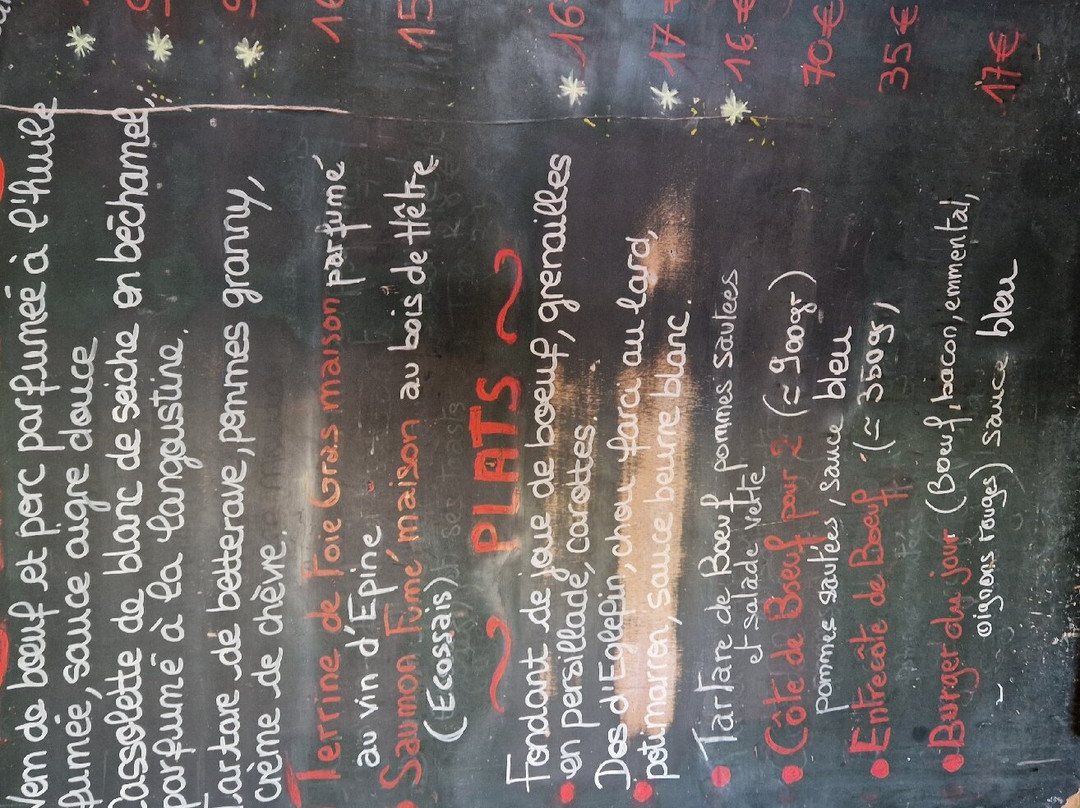 Nem de bœuf et porc parfumée à l'huile
fumée, sauce aigre douce
Cassolette de blanc de seiche en béchamel,
parfumé à la langoustine.
Tartare de betterave, pommes granny,
crème de chèvre.
Terrine de Foie Gras maison parfumé 16
au vin d'Epine
Saumon Fumé maison au bois de Hêtre 15
(Ecossais)
~ PLATS ~
Fondant de joue de boeuf, grenailles 16
en persillade, carottes.
Dos d'Eglefin, chou farci au lard, 17 €
potimarron, sauce beurre blanc.
Tartare de Boeuf pommes sautées 16 €
et salade verte
Côte de Boeuf pour 2 (≃ 900gr) 70€
pommes sautées, sauce bleu
Entrecôte de Boeuf (≃ 350gr) 35€
Burger du jour (Boeuf, bacon, emmental, 17€
oignons rouges) sauce bleu